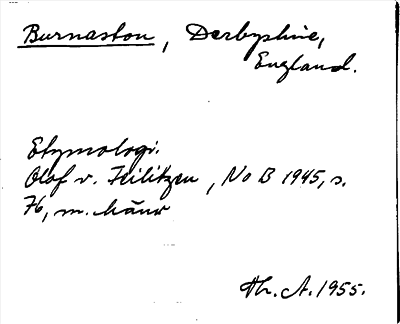 Burnaston, Derbyshire,
England.
Etymologi.
Olof v. Feilitzen, NoB 1945, s.
76, m. hänv
Th. A. 1955.